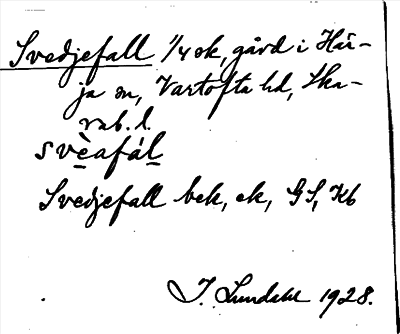 Svedjefall 1/4 sk, gård i Här-
ja sn, Vartofta hd, Ska-
rab. l.
svèafàl
Svedjefall bek, ek, GS, Kb
I. Lundahl 1928.